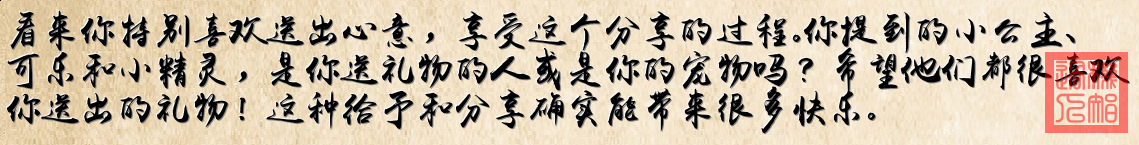 看来你特别喜欢送出心意，享受这个分享的过程。你提到的小公主、
可乐和小精灵，是你送礼物的人或是你的宠物吗？希望他们都很喜欢
你送出的礼物！这种给予和分享确实能带来很多快乐。